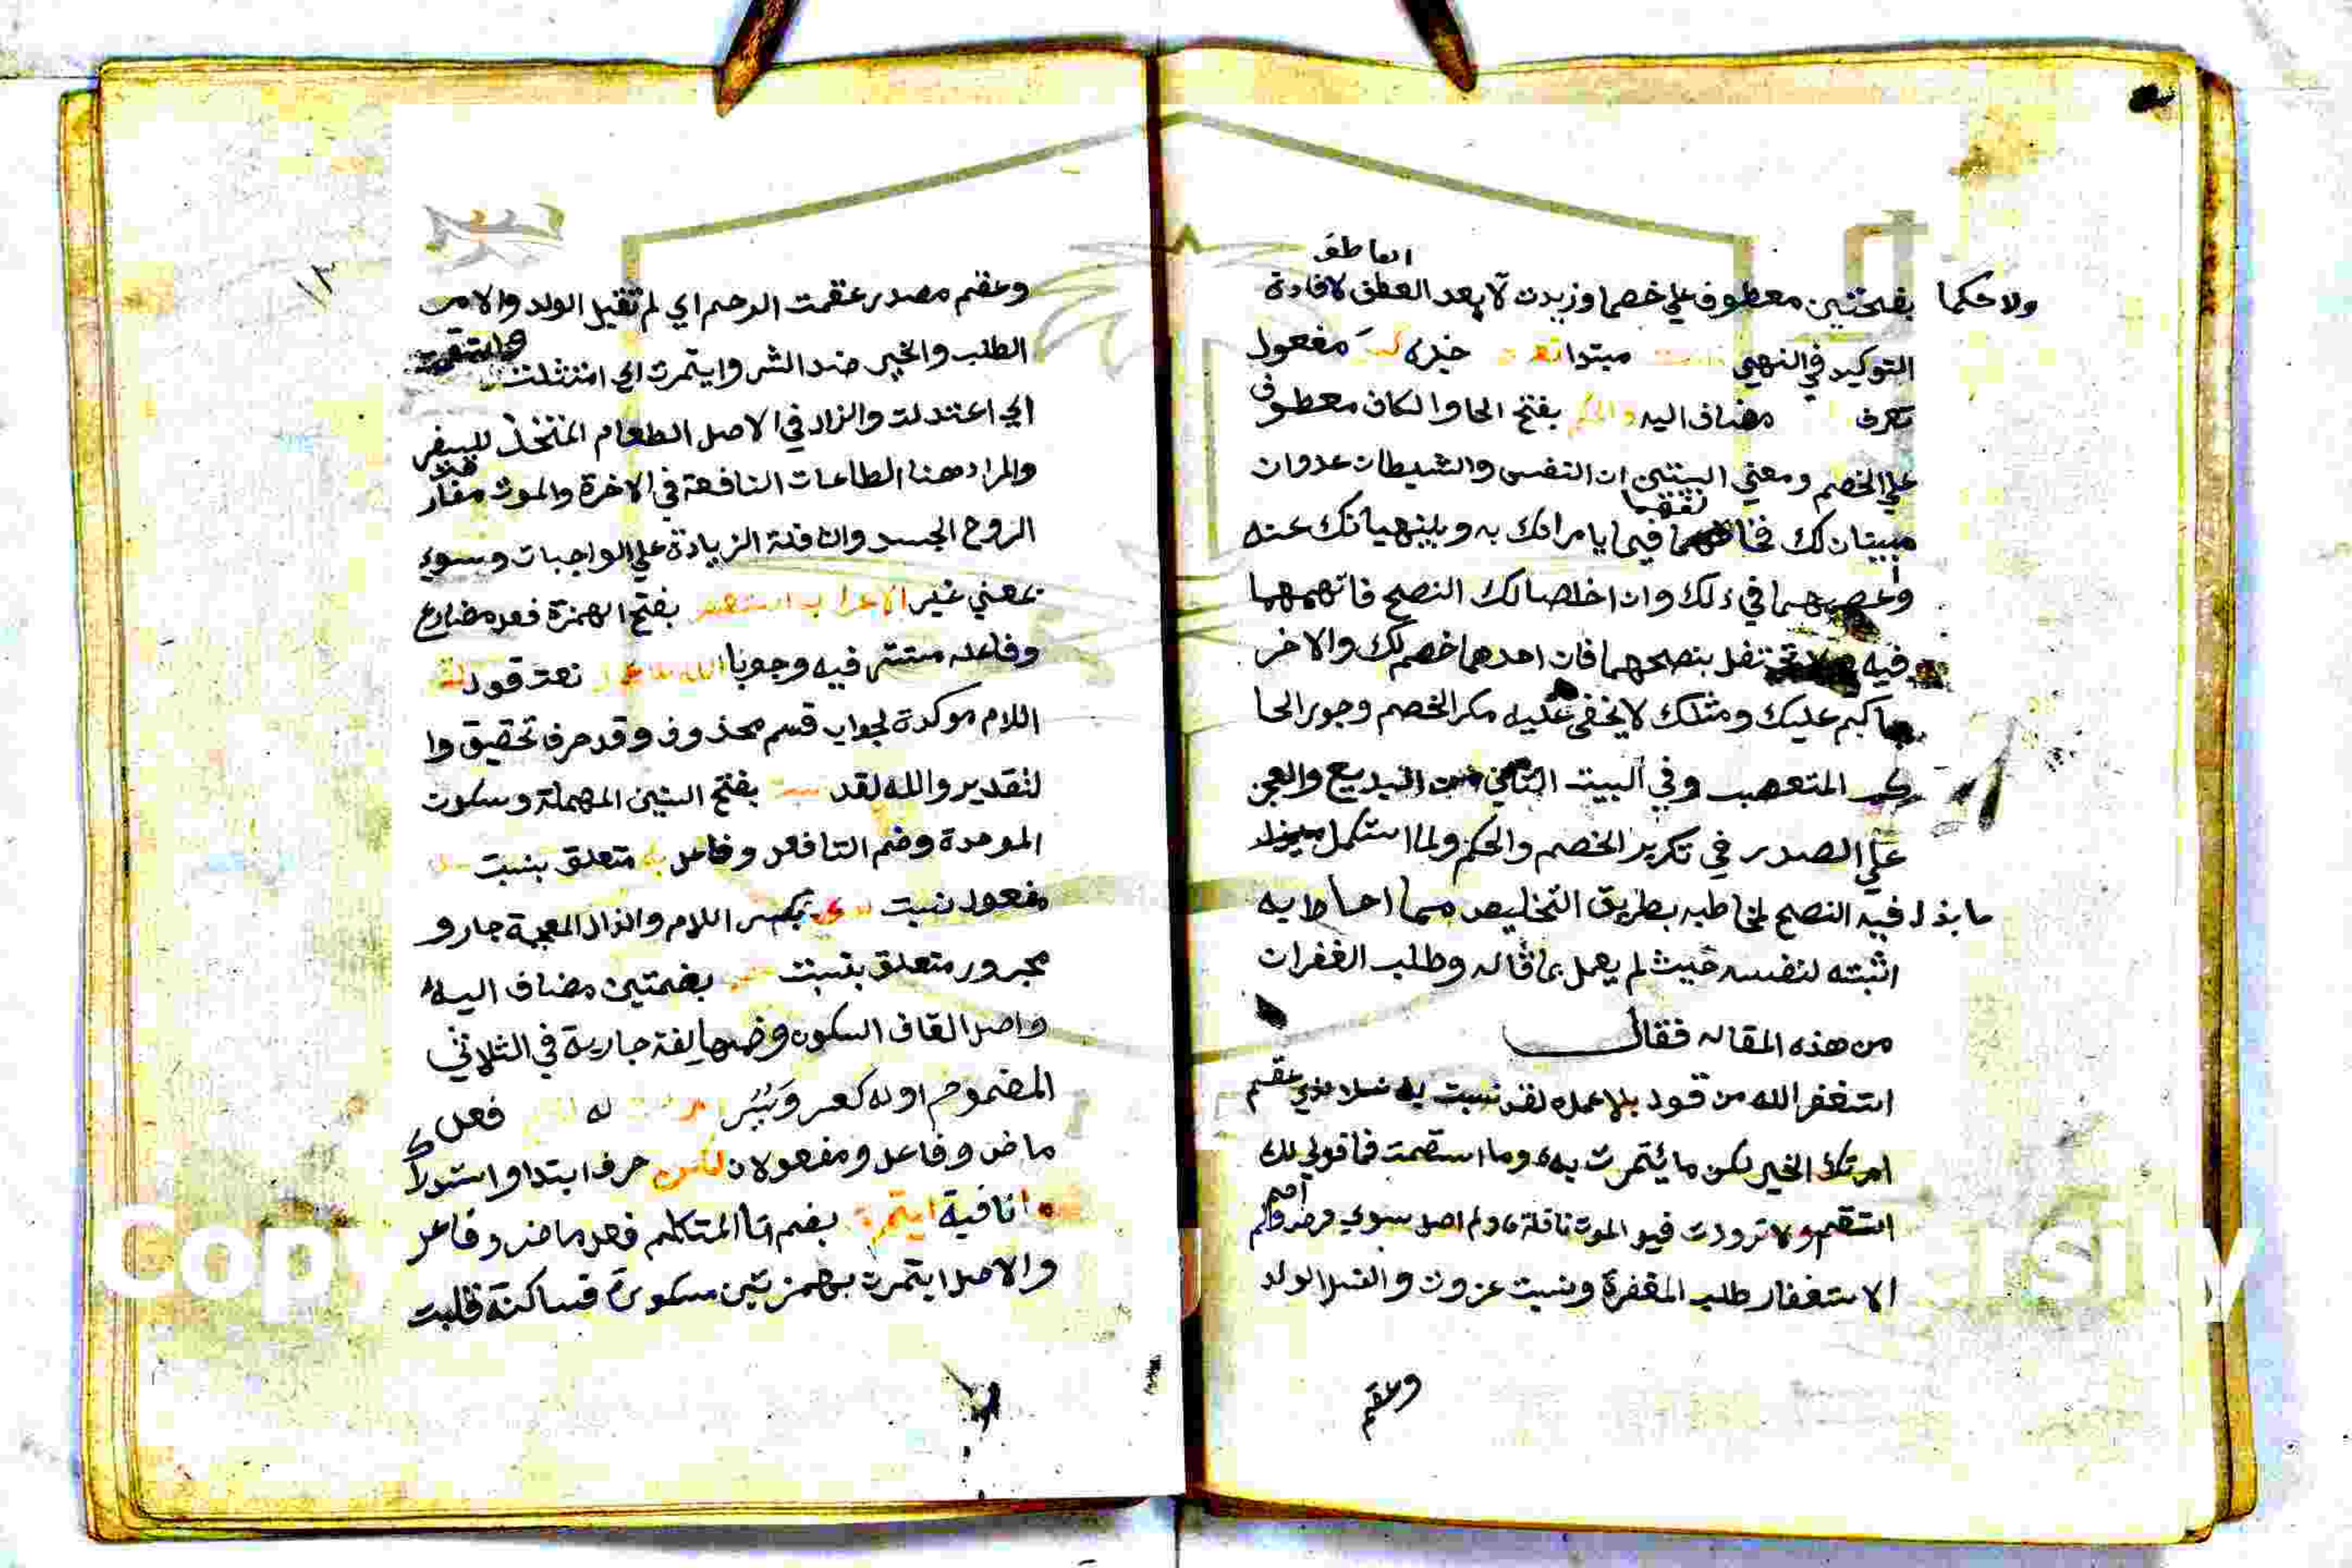 العاطف
ولا حكما بفتحتين معطوف علي خصما وزيدت لا بعد العطف لافادة
التوكيد في النهي مبتدا خبره مفعول
تعرف مضاف اليه والحكم بفتح الحا والكاف معطوف
علي الخصم ومعني البيتين ان النفس والشيطان عدوان
مبينان لك فيما يامرانك به وينهيانك عنه
واعصهما في ذلك وان اخلصا لك النصح فاتهمهما
فيه بنصحهما فان احدهما خصم لك والاخر
حاكم عليك ومثلك لا يخفي عليه مكر الخصم وجور الحا
كم المتعصب وفي البيت الثاني من البديع والعجز
علي الصدر في تكرير الخصم والحكم ولما استكمل
ما بذل فيه النصح لمخاطبه بطريق التخليص مما احاط به
اثبته لنفسه حيث لم يعمل بما قاله وطلب الغفران
من هذه المقاله فقال
استغفر الله من قول بلا عمل لقد نسبت به نسلا لذي عقم
امرتك الخير لكن ما يتمرت به وما استقمت فما قولي لك
استقم ولا تزودت قبل الموت نافلة ولم اصل سوي فرض ولم
اصم
الاستغفار طلب المغفرة ونسبت عزوت والنسل الولد
وعقم
١٣
وعقم مصدر عقمت الرحم اي لم تقبل الولد والامر
الطلب والخير ضد الشر وايتمرت اي امتثلت واستقمت
اي اعتدلت والزاد في الاصل الطعام المتخذ للسفر
والمراد هنا الطاعات النافعة في الاخرة والموت مفارقة
الروح الجسد والنافلة الزيادة علي الواجبات وسوي
بمعني غير الاعراب استغفر بفتح الهمزة فعل مضارع
وفاعله مستتر فيه وجوبا نعت قول لقد
اللام موكدة لجواب قسم محذوف وقد حرف تحقيق وا
لتقدير والله لقد بفتح السين المهملة وسكون
الموحدة وضم التا فعل وفاعل به متعلق بنسبت
مفعول نسبت بكسر اللام والذال المعجمة جار و
مجرور متعلق بنسبت بضمتين مضاف اليه
واصل القاف السكون وضمها لغة جارية في الثلاثي
المضموم اوله كعسر ويسر فعل
ماض وفاعل ومفعولان لكن حرف ابتدا واستدراك
ما نافية ايتمرت بضم تا المتكلم فعل ماض وفاعل
والاصل ايتمرت بهمزتين مسكورة فساكنة قلبت